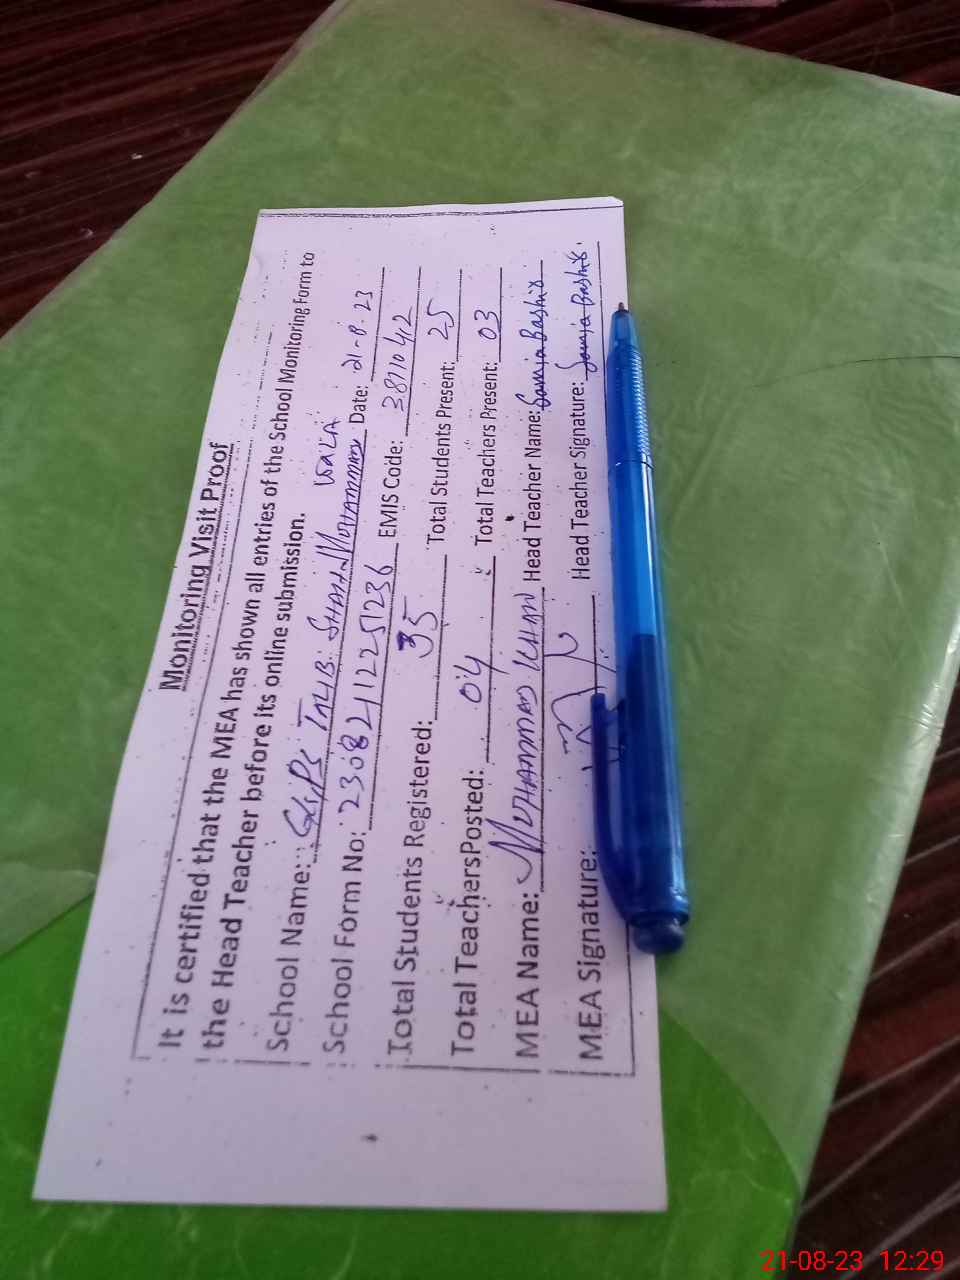 Monitoring Visit Proof
It is certified that the MEA has shown all entries of the School Monitoring Form to
the Head Teacher before its online submission.
School Name: GGPS SHAH MOHAMMAD WALA Date: 21-8-23
School Form No: 23082112251236 EMIS Code: 3811042
Total Students Registered: 35 Total Students Present: 25
Total TeachersPosted: 04 Total Teachers Present: 03
MEA Name: MUHAMMAD KHAN Head Teacher Name: Samia Bashir
MEA Signature: Head Teacher Signature: Samia Bashir.
21-08-23 12:29